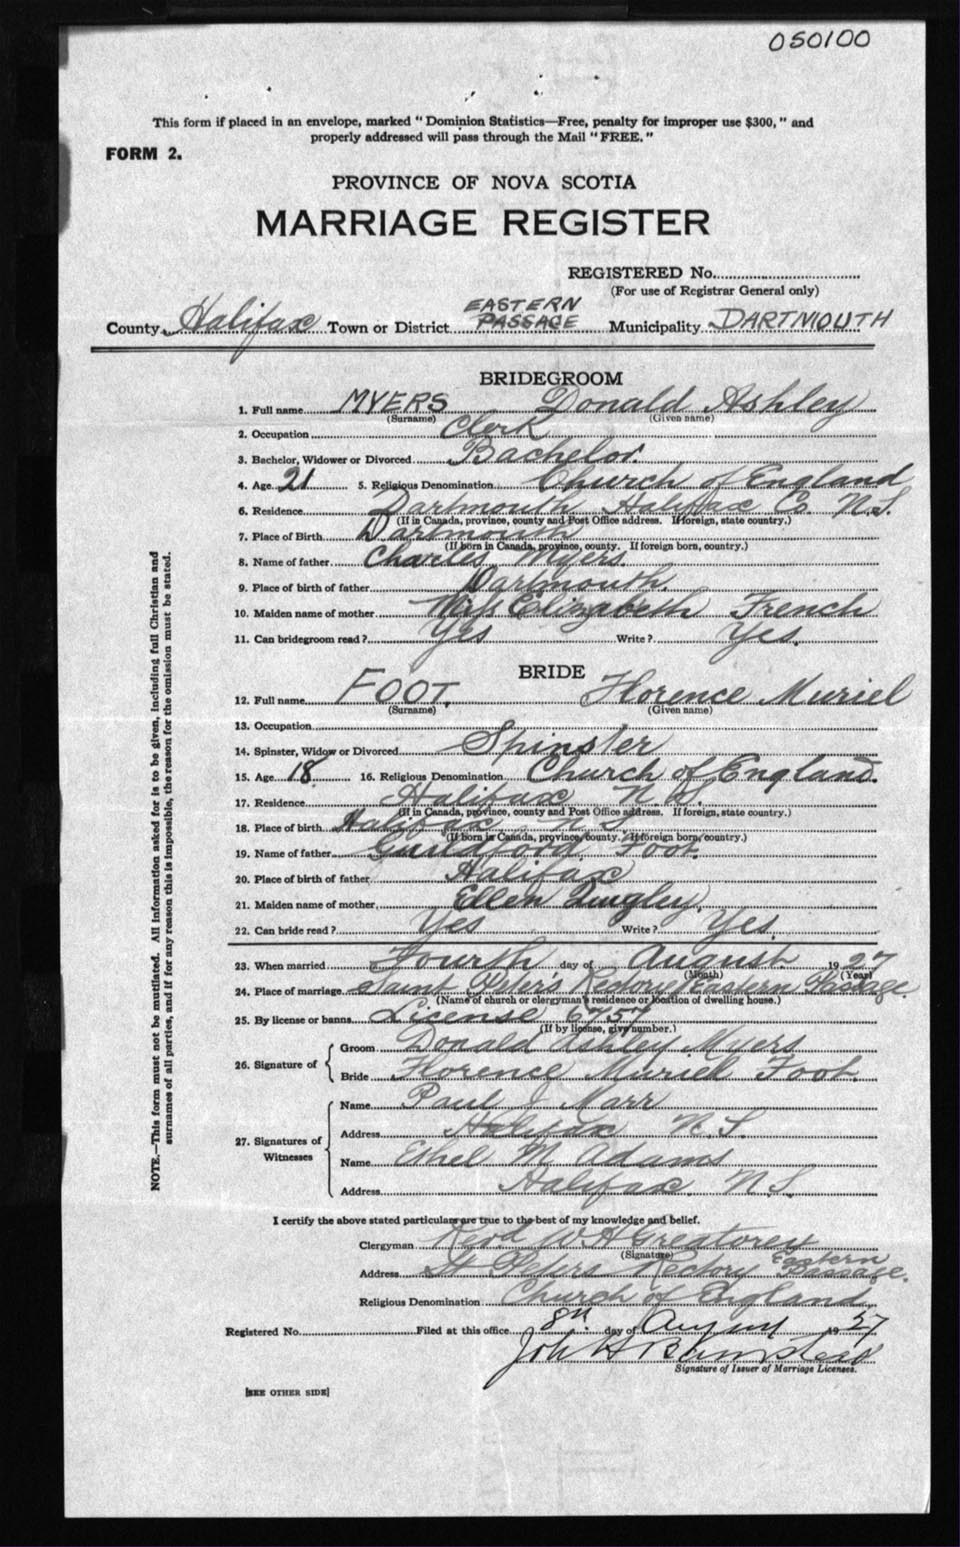 050100
This form if placed in an envelope, marked "Dominion Statistics—Free, penalty for improper use $300," and
properly addressed will pass through the Mail "FREE."
FORM 2.
PROVINCE OF NOVA SCOTIA
MARRIAGE REGISTER
REGISTERED No.
(For use of Registrar General only)
County Halifax Town or District EASTERN PASSAGE Municipality DARTMOUTH
BRIDEGROOM
1. Full name MYERS Donald Ashley
(Surname) (Given name)
2. Occupation Clerk
3. Bachelor, Widower or Divorced Bachelor.
4. Age 21 5. Religious Denomination Church of England
6. Residence Dartmouth Halifax Co. N.S.
(If in Canada, province, county and Post Office address. If foreign, state country.)
7. Place of Birth Dartmouth
(If born in Canada, province, county. If foreign born, country.)
8. Name of father Charles Myers.
9. Place of birth of father Dartmouth.
10. Maiden name of mother Miss Elizabeth French
11. Can bridegroom read? Yes Write? Yes.
BRIDE
12. Full name FOOT. Florence Muriel
(Surname) (Given name)
13. Occupation
14. Spinster, Widow or Divorced Spinster
15. Age 18 16. Religious Denomination Church of England.
17. Residence Halifax N.S.
(If in Canada, province, county and Post Office address. If foreign, state country.)
18. Place of birth Halifax N.S.
(If born in Canada, province, county. If foreign born, country.)
19. Name of father Guildford Foot.
20. Place of birth of father Halifax
21. Maiden name of mother Ellen
22. Can bride read? Yes Write? Yes.
23. When married Fourth day of August 1927
(Month) (Year)
24. Place of marriage Saint Peter's Rectory Eastern Passage.
(Name of church or clergyman's residence or location of dwelling house.)
25. By license or banns License 6757
(If by license, give number.)
26. Signature of Groom Donald Ashley Myers
Bride Florence Muriel Foot.
27. Signatures of Witnesses Name Paul J Marr
Address Halifax N.S.
Name Ethel M Adams
Address Halifax. N.S.
I certify the above stated particulars are true to the best of my knowledge and belief.
Clergyman Revd W H Greatorex
(Signature)
Address St Peters Rectory Eastern Passage.
Religious Denomination Church of England.
Registered No. Filed at this office 8th day of August 1927
John H
Signature of Issuer of Marriage Licenses.
[SEE OTHER SIDE]
NOTE.—This form must not be mutilated. All information asked for is to be given, including full Christian and
surnames of all parties, and if for any reason this is impossible, the reason for the omission must be stated.